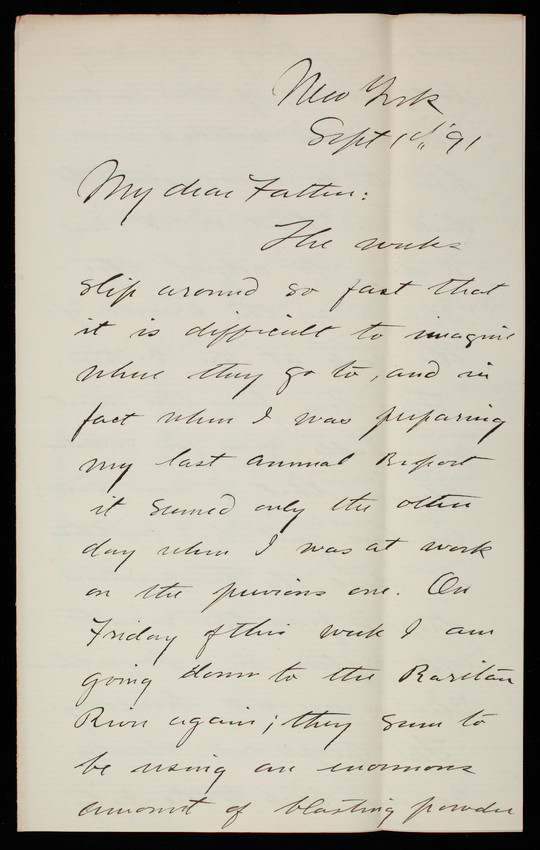 New York
Sept 1st, 91
My dear Father:
The weeks
slip around so fast that
it is difficult to imagine
where they go to, and in
fact when I was preparing
my last annual Report
it seemed only the other
day when I was at work
on the previous one. On
Friday of this week I am
going down to the Raritan
River again; they seem to
be using an enormous
amount of blasting powder